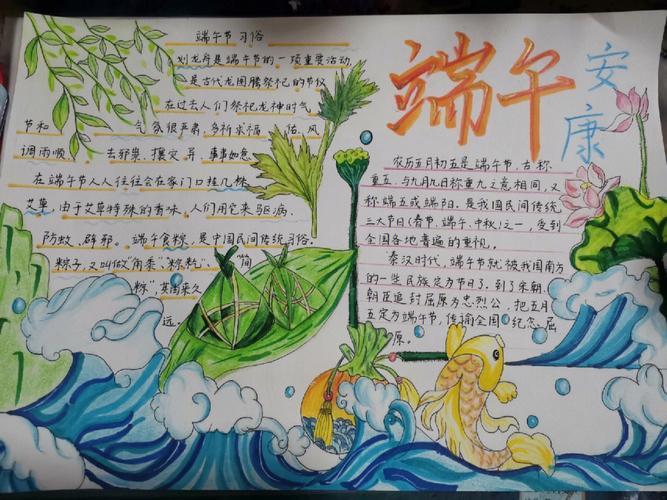 端午 安康
端午节 习俗
划龙舟是端午节的一项重要活动,
是古代龙图腾祭祀的节仪
在过去人们祭祀龙神时气
节和 气氛很严肃,多祈求福 佑、风
调雨顺、 去邪祟、攘灾异、事事如意
在端午节人人往往会在家门口挂几株
艾草,由于艾草特殊的香味,人们用它来驱病、
防蚊、辟邪。端午食粽,是中国民间传统习俗。
粽子,又叫做"角黍""粽粒" "筒
粽",其由来久
远。
农历五月初五是端午节,古称
重五,与九月九日称重九之意相同,又
称端五或端阳,是我国民间传统
三大节日(春节、端午、中秋)之一,受到
全国各地普遍的重视。
秦汉时代,端午节就被我国南方
的一些民族定为节日了,到了宋朝,
朝臣追封屈原为忠烈公,把五月
五定为端午节,传谕全国 纪念 屈
原。